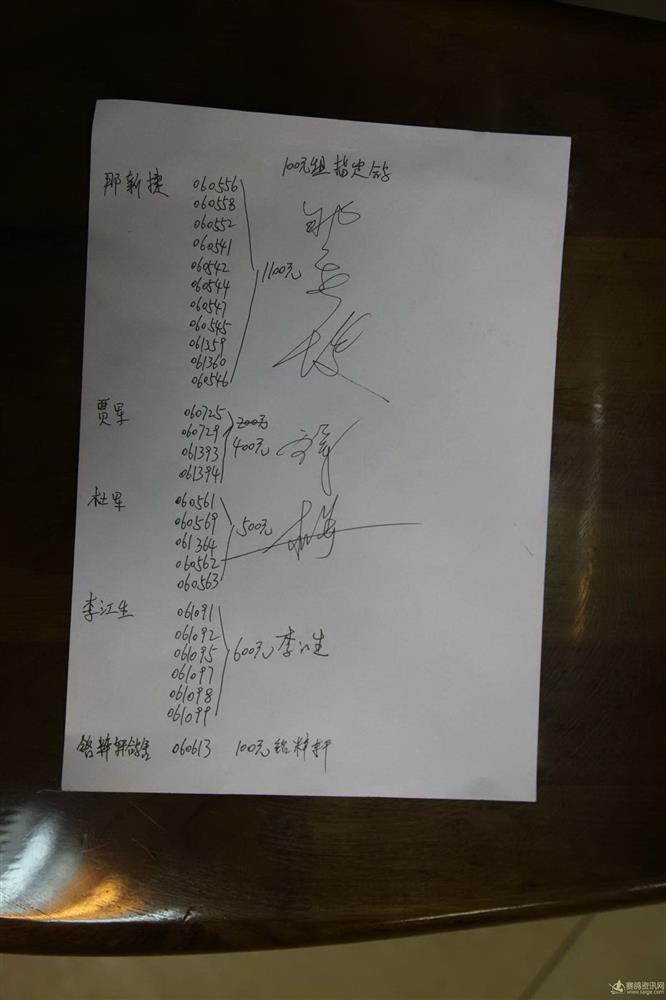 100元组指定鸽
那新捷 060556
060558
060552
060541
060542 1100元
060544
060547
060545
061359
061360
060546
贾军 060725 200元
060729 400元
061393
061394
杜军 060561
060569 500元
061364
060562
060563
李江生 061091
061092
061095 600元 李江生
061097
061098
061099
铭梓轩鸽舍 060613 100元 铭梓轩
赛鸽资讯网
www.saige.com